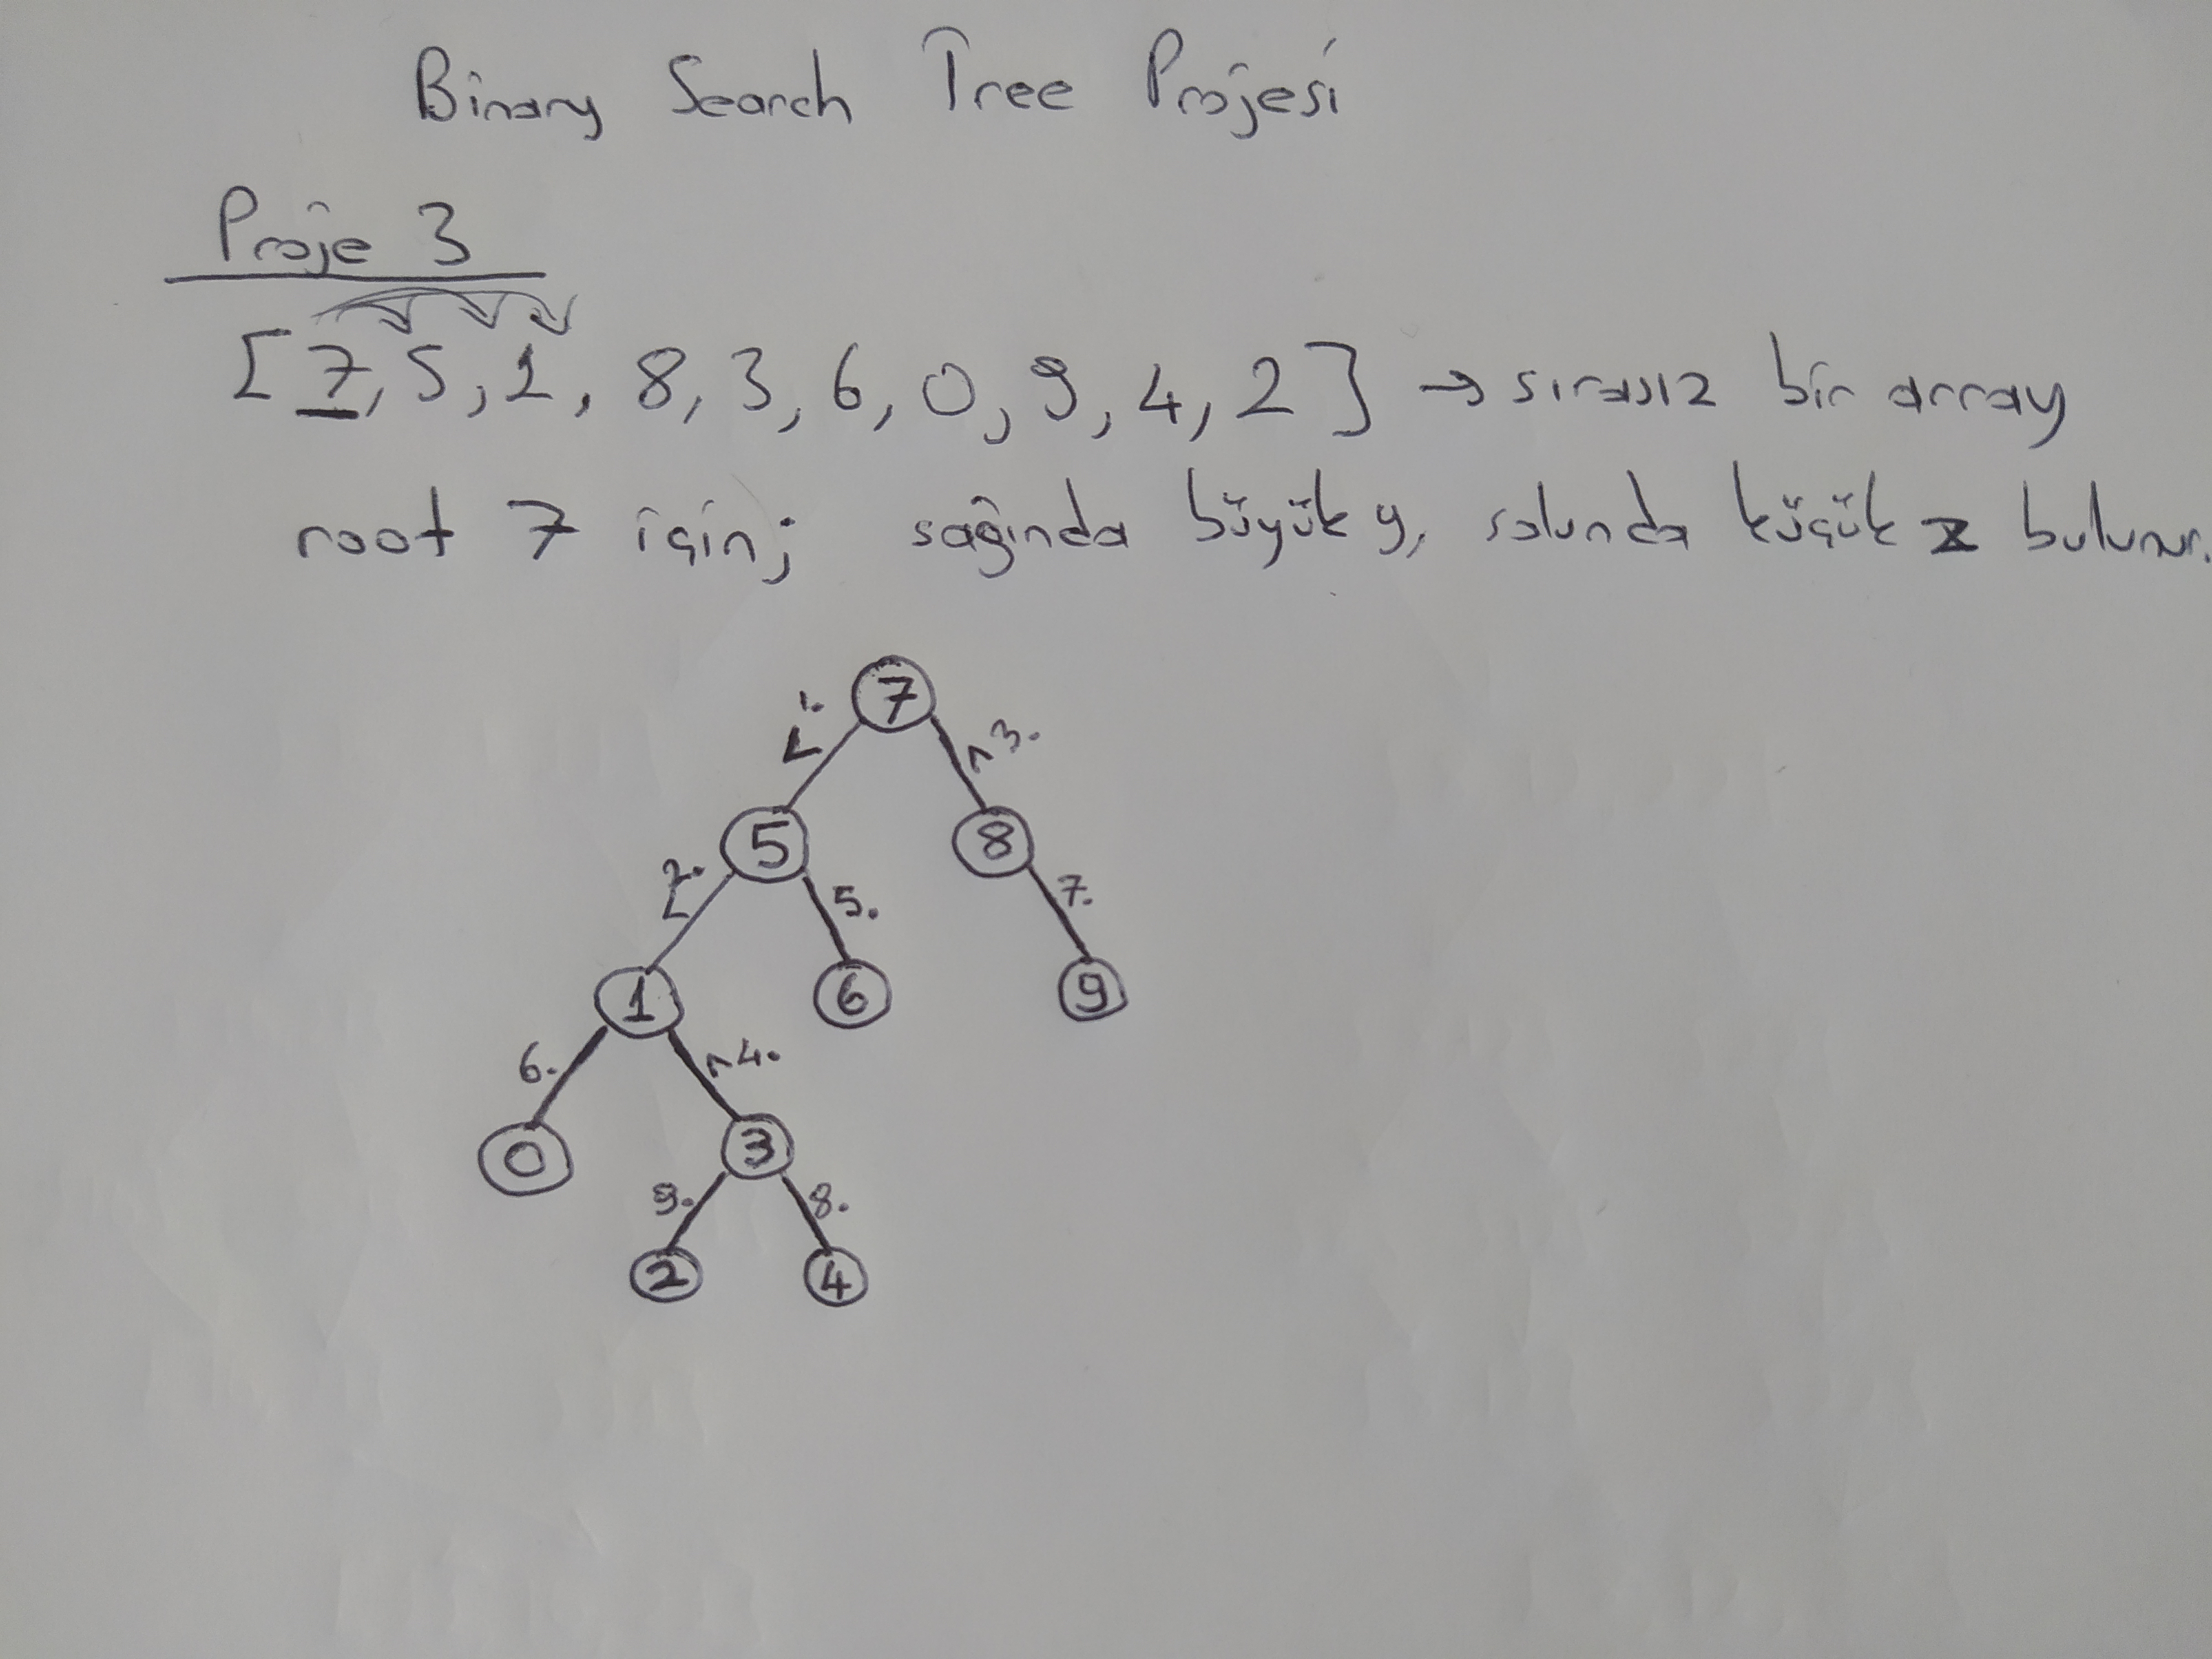 Binary Search Tree Projesi
Proje 3
[7, 5, 1, 8, 3, 6, 0, 9, 4, 2] → sırasız bir array
root 7 için; sağında büyük y, solunda küçük z bulunur.
7
1. 3.
5 8
2. 5. 7.
1 6 9
6. 4.
0 3
9. 8.
2 4